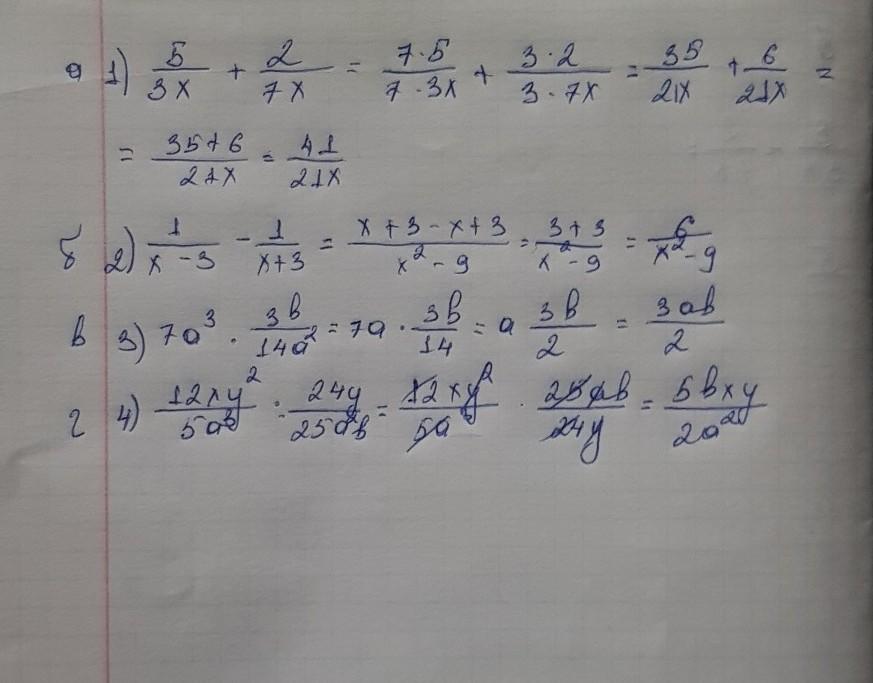 а 1) 5/3x + 2/7x = 7·5/7·3x + 3·2/3·7x = 35/21x + 6/21x =
= 35+6/21x = 41/21x
б 2) 1/x-3 - 1/x+3 = x+3-x+3/x²-9 = 3+3/x²-9 = 6/x²-9
в 3) 7a³ · 3b/14a² = 7a · 3b/14 = a 3b/2 = 3ab/2
г 4) 12xy²/5a³ : 24y/25a²b = 12xy²/5a · 25ab/24y = 5bxy/2a²